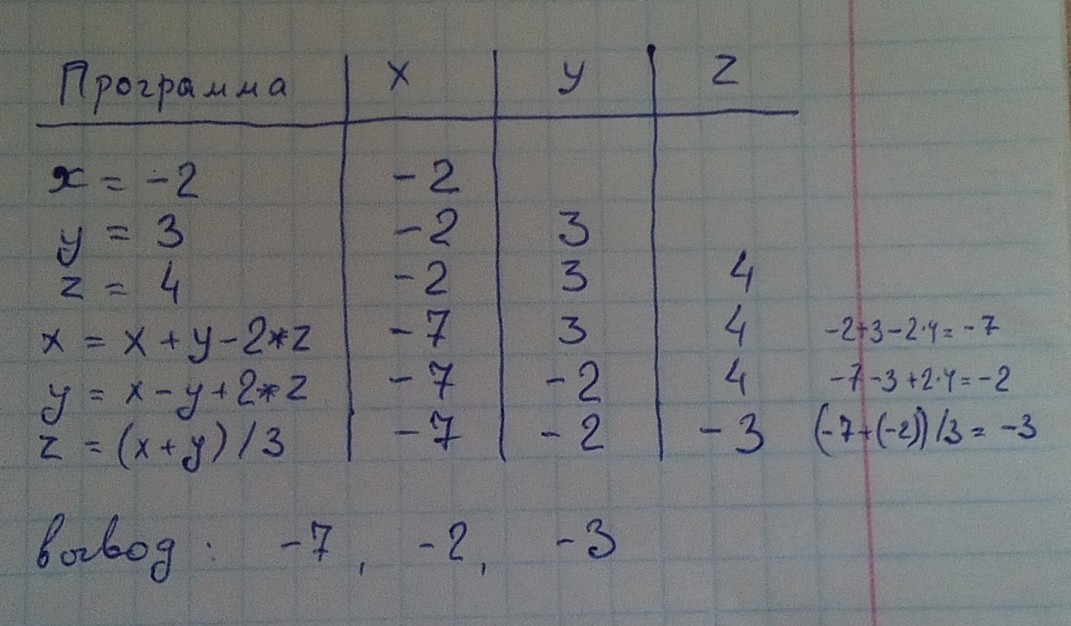 Программа x y z
x = -2 -2
y = 3 -2 3
z = 4 -2 3 4
x = x + y - 2*z -7 3 4 -2+3-2·4= -7
y = x - y + 2*z -7 -2 4 -7-3+2·4= -2
z = (x+y)/3 -7 -2 -3 (-7+(-2))/3 = -3
вывод: -7, -2, -3